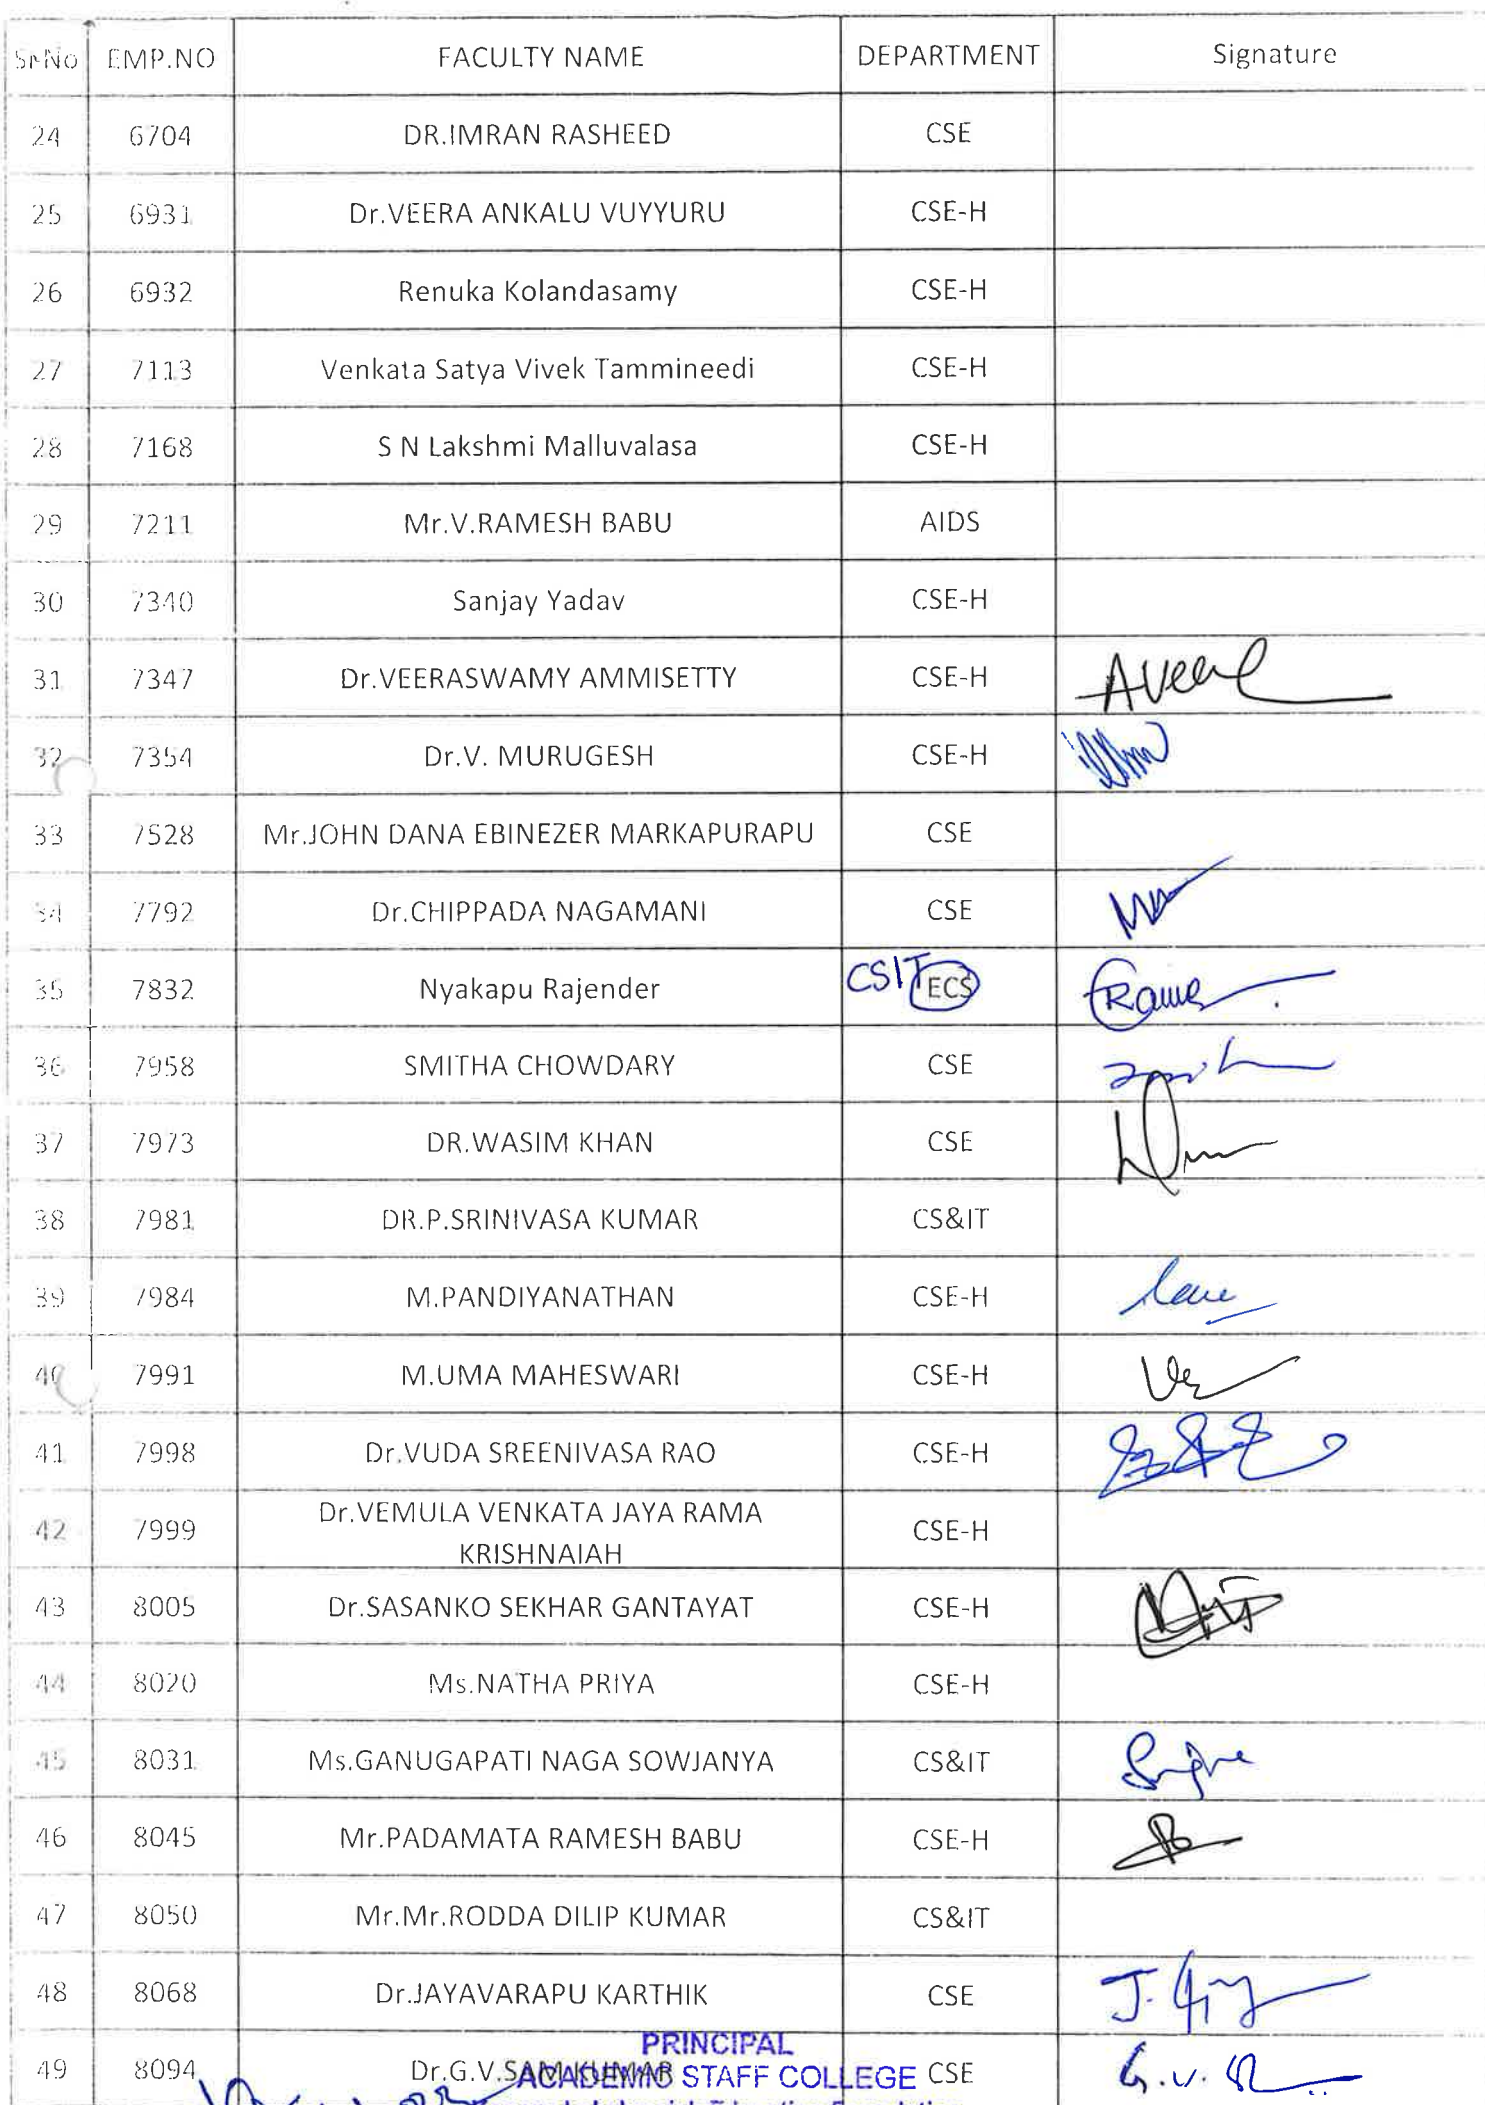 Sr.No EMP.NO FACULTY NAME DEPARTMENT Signature
24 6704 DR.IMRAN RASHEED CSE
25 6931 Dr.VEERA ANKALU VUYYURU CSE-H
26 6932 Renuka Kolandasamy CSE-H
27 7113 Venkata Satya Vivek Tammineedi CSE-H
28 7168 S N Lakshmi Malluvalasa CSE-H
29 7211 Mr.V.RAMESH BABU AIDS
30 7340 Sanjay Yadav CSE-H
31 7347 Dr.VEERASWAMY AMMISETTY CSE-H
32 7354 Dr.V. MURUGESH CSE-H
33 7528 Mr.JOHN DANA EBINEZER MARKAPURAPU CSE
34 7792 Dr.CHIPPADA NAGAMANI CSE
35 7832 Nyakapu Rajender CSIT ECS
36 7958 SMITHA CHOWDARY CSE
37 7973 DR.WASIM KHAN CSE
38 7981 DR.P.SRINIVASA KUMAR CS&IT
39 7984 M.PANDIYANATHAN CSE-H
40 7991 M.UMA MAHESWARI CSE-H
41 7998 Dr.VUDA SREENIVASA RAO CSE-H
42 7999 Dr.VEMULA VENKATA JAYA RAMA
KRISHNAIAH CSE-H
43 8005 Dr.SASANKO SEKHAR GANTAYAT CSE-H
44 8020 Ms.NATHA PRIYA CSE-H
45 8031 Ms.GANUGAPATI NAGA SOWJANYA CS&IT
46 8045 Mr.PADAMATA RAMESH BABU CSE-H
47 8050 Mr.Mr.RODDA DILIP KUMAR CS&IT
48 8068 Dr.JAYAVARAPU KARTHIK CSE
PRINCIPAL
49 8094 Dr.G.V.SAM KUMAR CSE G.V.
ACADEMIC STAFF COLLEGE